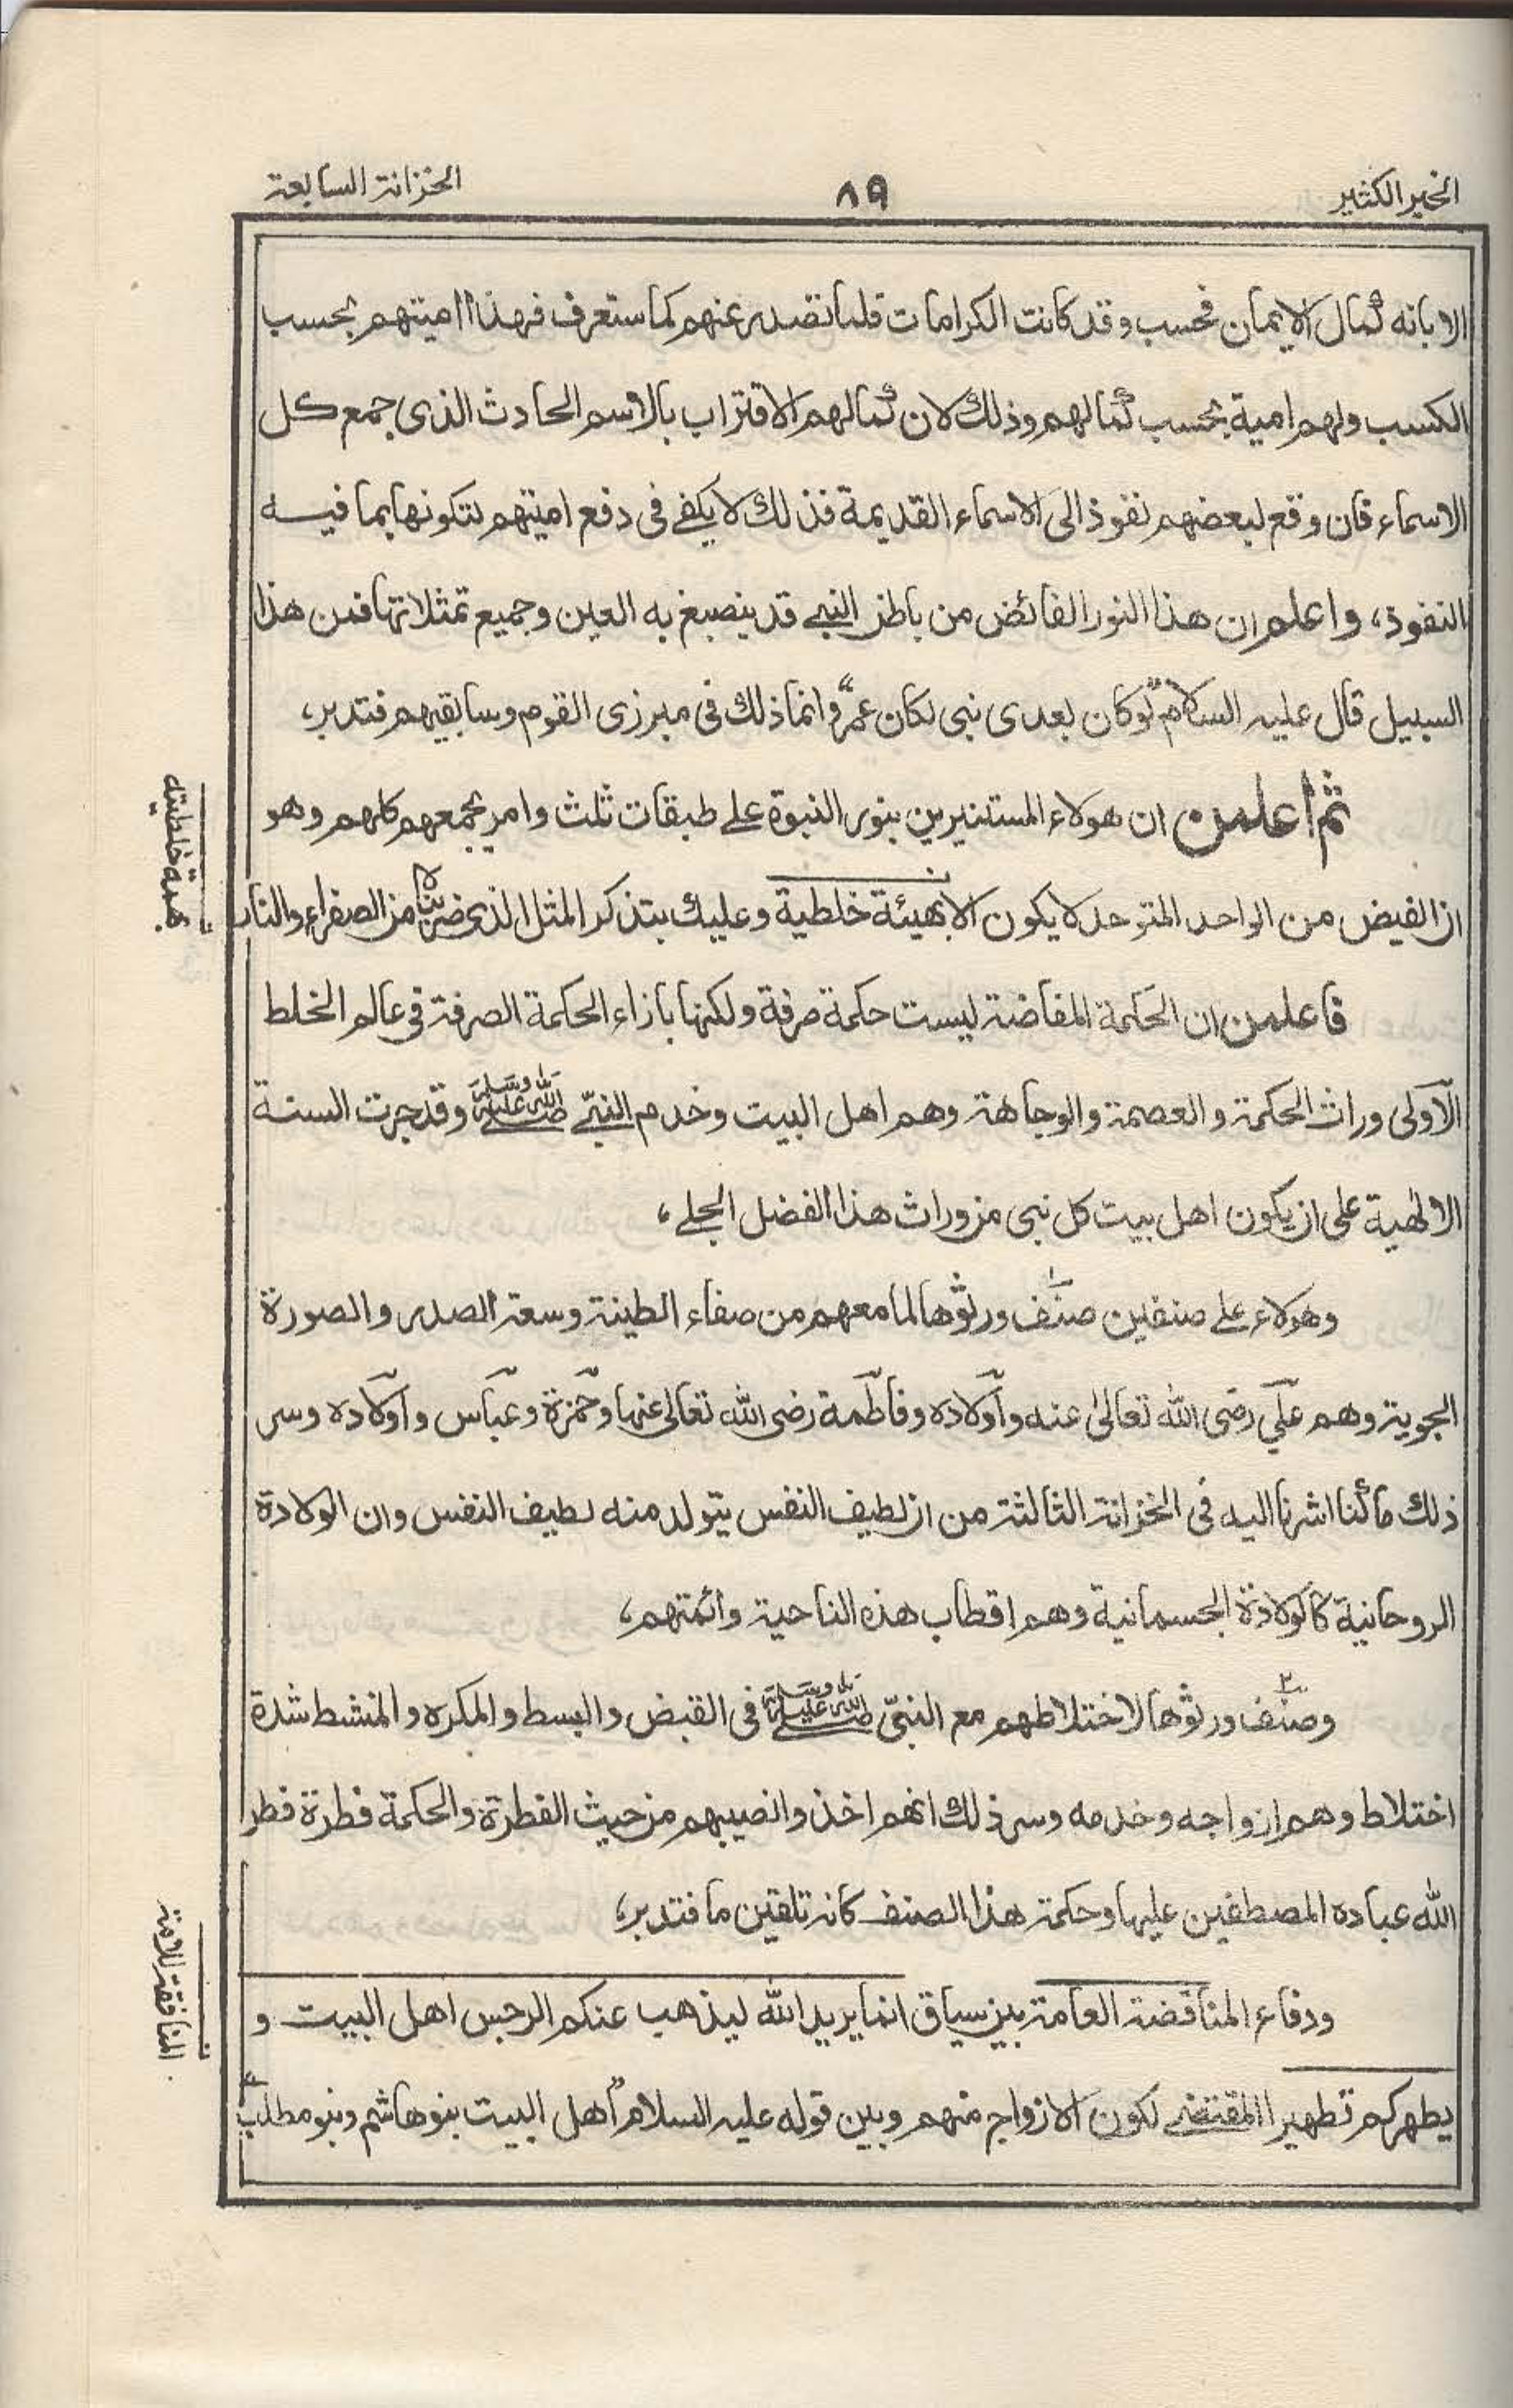 الخير الكثير
٨٩
الخزانة السابعة
الا بانه كمال الايمان فحسب وقد كانت الكرامات قلما تصدر عنهم كما ستعرف فهذا اميتهم بحسب
الكسب ولهم امية بحسب كمالهم وذلك لان كمالهم الاقتراب بالاسم الحادث الذى جمع كل
الاسماء فان وقع لبعضهم نفوذ الى الاسماء القديمة فذلك لا يكفے فى دفع اميتهم لتكونها بما فيه
النفوذ، واعلم ان هذا النور الفائض من باطن النبے قد ينصبغ به العين وجميع تمثلاتها فمن هذا
السبيل قال عليه السلام "لو كان بعدى نبى لكان عمر" وانما ذلك فى مبرزى القوم وسابقيهم فتدبر،
ثم اعلمن ان هولاء المستنيرين بنور النبوة علے طبقات ثلث وامر يجمعهم كلهم وهو
ان الفيض من الواحد المتوحد لا يكون الا بهيئة خلطية وعليك بتذكر المثل الذى ضربناه من الصفراء والنار
بهيئة خلطيته
فاعلمن ان الحكمة المفاضة ليست حكمة صرفة ولكنها بازاء الحكمة الصرفة فى عالم الخلط
الاولى وراث الحكمة والعصمة والوجاهة وهم اهل البيت وخدم النبىّ صلى الله عليه وسلم وقد جرت السنة
الالهية على ان يكون اهل بيت كل نبى من وراث هذا الفضل الجلے،
وهولاء علے صنفين صنف ورثوها لما معهم من صفاء الطينة وسعة الصدر والصورة
الجوية وهم علي رضى الله تعالىٰ عنه واولاده وفاطمة رضى الله تعالىٰ عنها وحمزة وعباس واولاده وسر
ذلك ما كنا اشرنا اليه فى الخزانة الثالثة من ان لطيف النفس يتولد منه لطيف النفس وان الولادة
الروحانية كالولادة الجسمانية وهم اقطاب هذه الناحية وائمتهم،
وصنف ورثوها لاختلاطهم مع النبىّ صلى الله عليه وسلم فى القبض والبسط والمكره والمنشط شدة
اختلاط وهم ازواجه وخدمه وسر ذلك انهم اخذوا نصيبهم من حيث الفطرة والحكمة فطرة فطر
الله عباده المصطفين عليها وحكمة هذا الصنف كانه تلقين ما فتدبر،
ودفاع المناقضة العامة بين سياق انما يريد الله ليذهب عنكم الرجس اهل البيت و
يطهركم تطهيرا المقتضے لكون الازواج منهم وبين قوله عليه السلام "اهل البيت بنوهاشم وبنومطلب